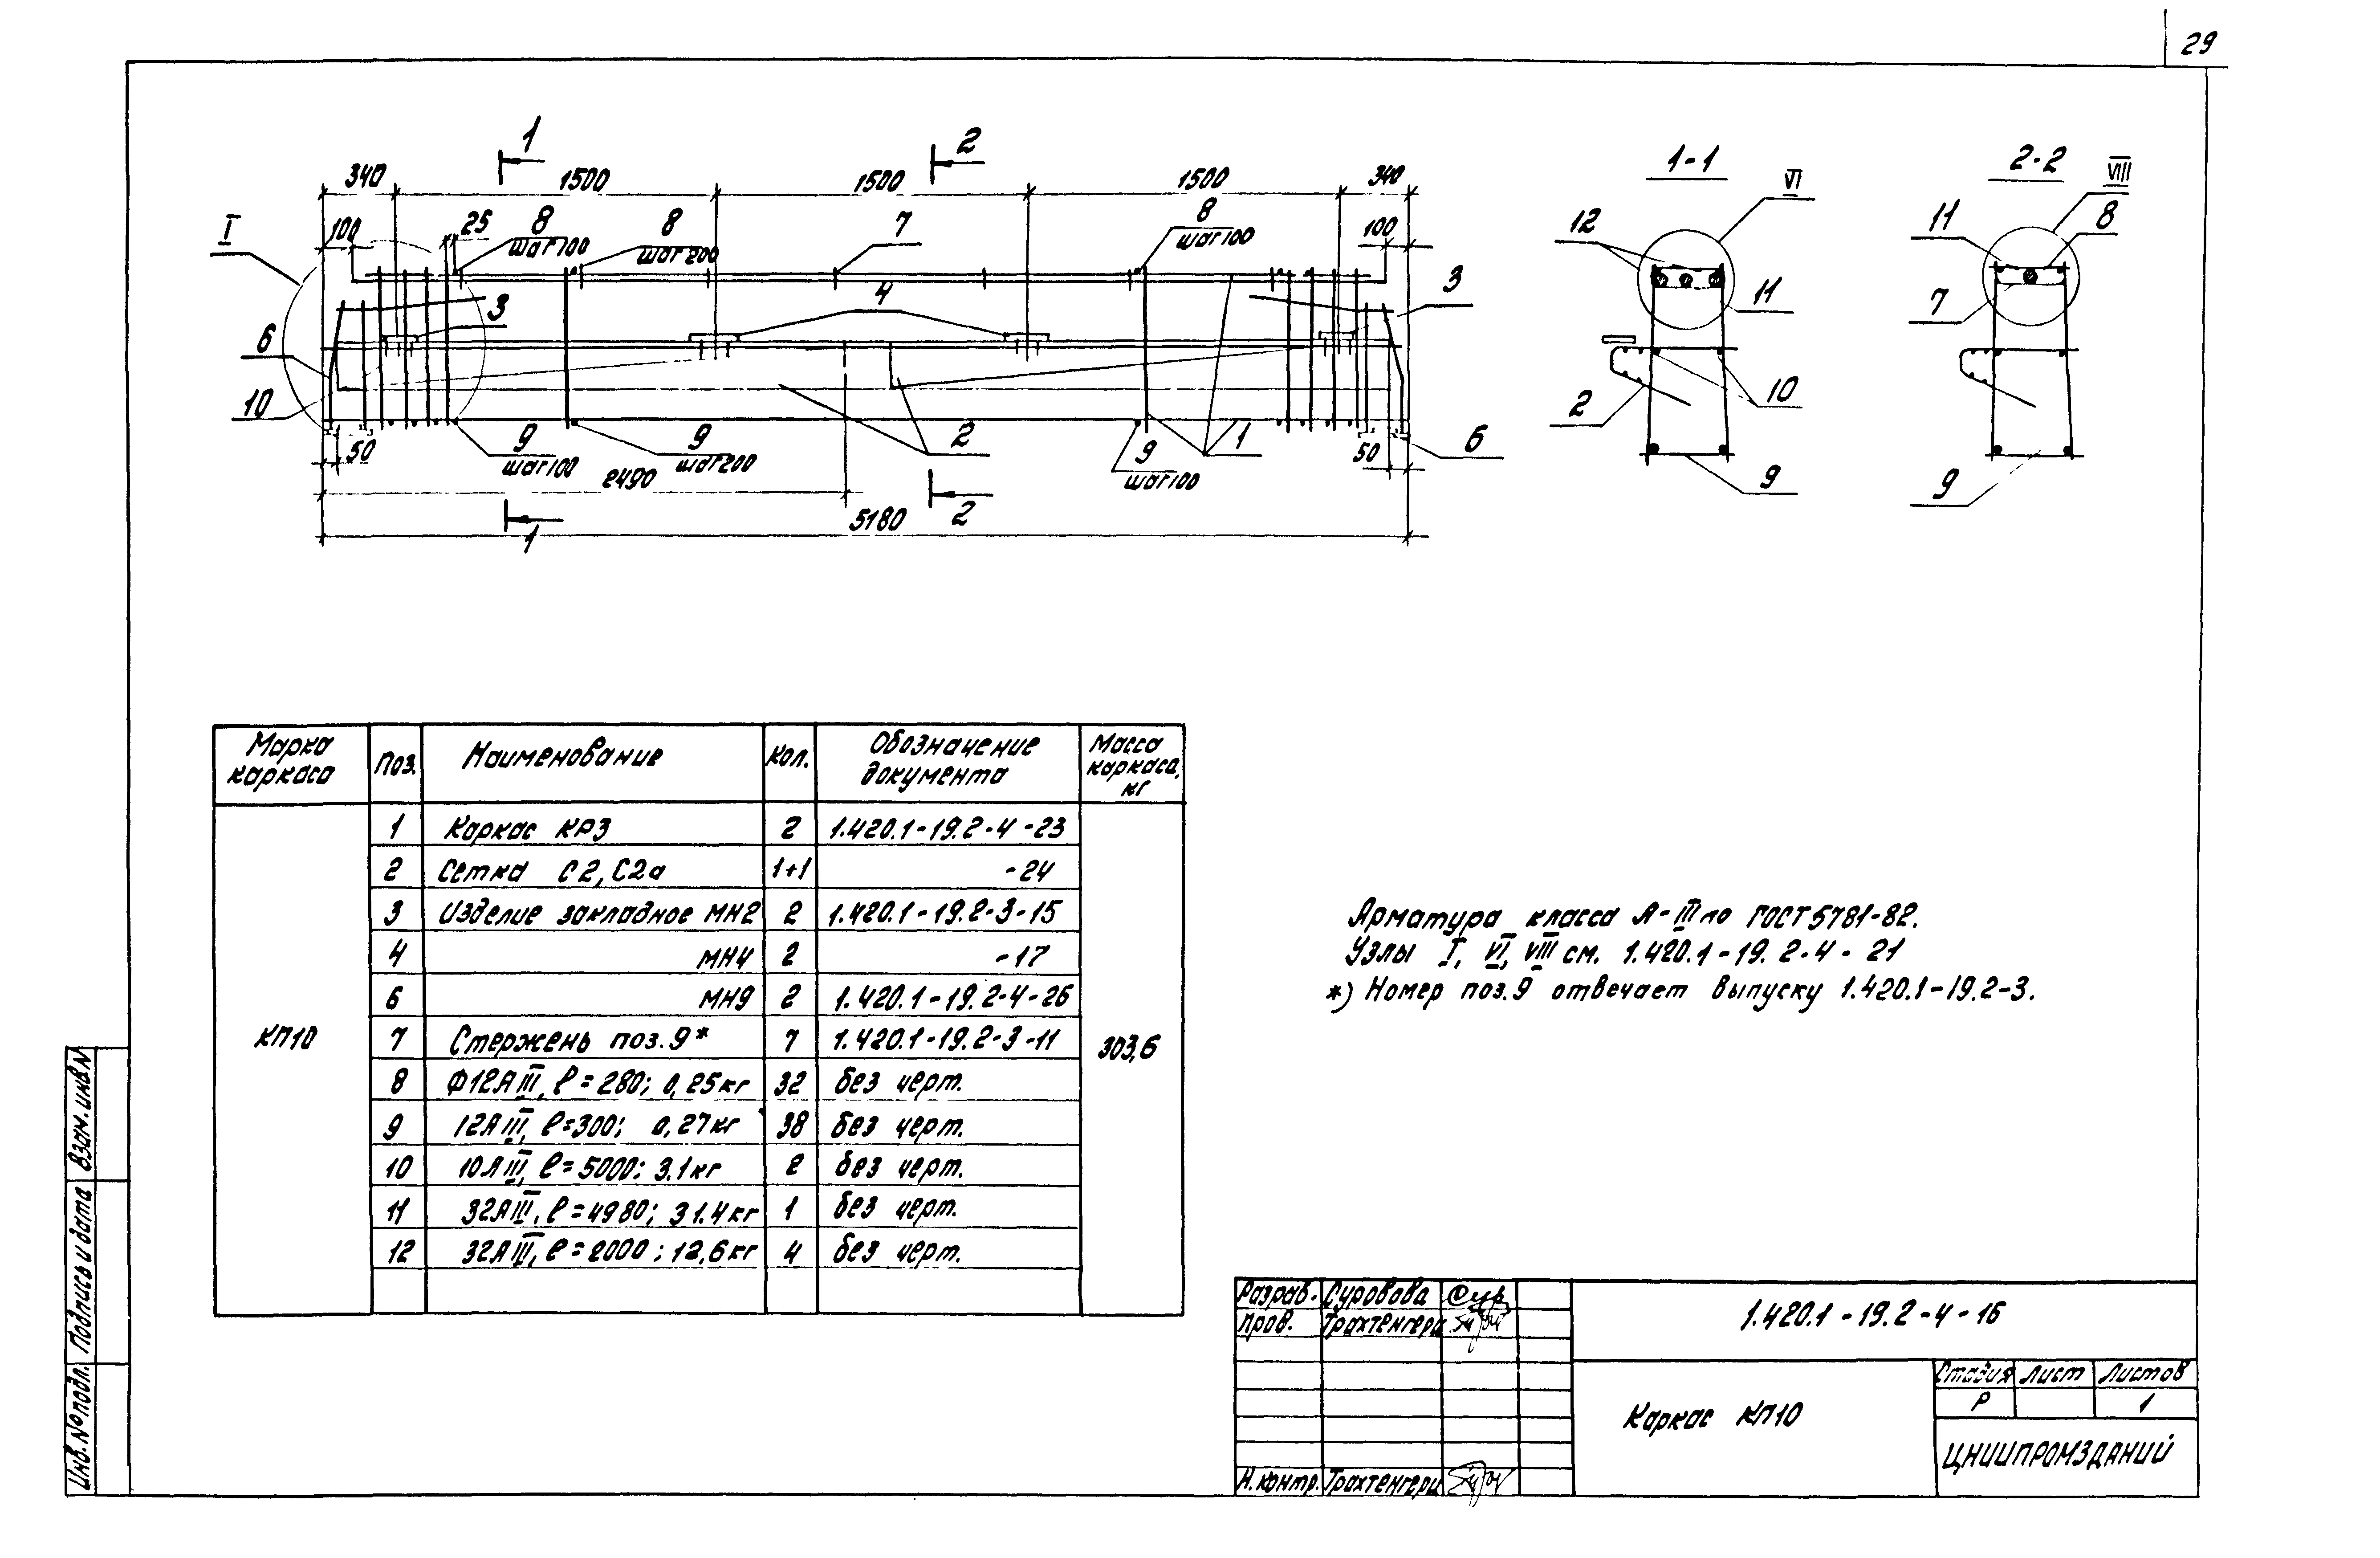 29
1
2
340
1500
1500
1500
340
1-1
2-2
I
100
25
8
шаг 100
8
шаг 200
7
8
шаг 100
100
VI
VIII
12
11
8
3
4
3
11
7
6
10
2
10
50
9
шаг 100
9
шаг 200
2
9
шаг 100
1
50
6
9
9
2490
5180
1
2
Марка каркаса | Поз. | Наименование | Кол. | Обозначение документа | Масса каркаса, кг
КП10 | 303,6
1 | Каркас КР3 | 2 | 1.420.1-19.2-4-23
2 | Сетка С2, С2а | 1+1 | -24
3 | Изделие закладное МН2 | 2 | 1.420.1-19.2-3-15
4 | МН4 | 2 | -17
6 | МН9 | 2 | 1.420.1-19.2-4-26
7 | Стержень поз.9* | 7 | 1.420.1-19.2-3-11
8 | Ф12АIII, ℓ=280; 0,25кг | 32 | без черт.
9 | 12АIII, ℓ=300; 0,27кг | 38 | без черт.
10 | 10АIII, ℓ=5000; 3.1кг | 2 | без черт.
11 | 32АIII, ℓ=4980; 31.4кг | 1 | без черт.
12 | 32АIII, ℓ=2000; 12,6кг | 4 | без черт.
Арматура класса А-III по ГОСТ 5781-82.
Узлы I, VI, VIII см. 1.420.1-19.2-4-21
*) Номер поз.9 отвечает выпуску 1.420.1-19.2-3.
Взам. инв N
Подпись и дата
Инв. № подл.
Разраб. Суровова
Пров. Трахтенгерц
Н.контр. Трахтенгерц
1.420.1-19.2-4-16
Каркас КП10
Стадия Лист Листов
Р 1
ЦНИИПРОМЗДАНИЙ